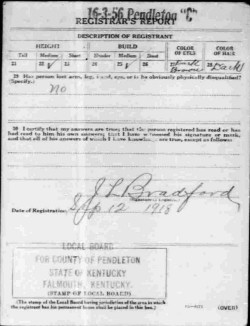 16-3-56 Pendleton "C"
REGISTRAR'S REPORT
DESCRIPTION OF REGISTRANT
HEIGHT BUILD COLOR OF EYES COLOR OF HAIR
Tall Medium Short Slender Medium Stout
21 22 ✓ 23 24 25 ✓ 26 27 Dark Brown 28 Dark
29 Has person lost arm, leg, hand, eye, or is he obviously physically disqualified?
(Specify.)
No
30 I certify that my answers are true; that the person registered has read or has
had read to him his own answers; that I have witnessed his signature or mark,
and that all of his answers of which I have knowledge are true, except as follows:
J L Bradford
Date of Registration Sep 12 1918
LOCAL BOARD
FOR COUNTY OF PENDLETON
STATE OF KENTUCKY
FALMOUTH, KENTUCKY
(STAMP OF LOCAL BOARD)
(The stamp of the Local Board having jurisdiction of the area in which
the registrant has his permanent home shall be placed in this box.)
(OVER)